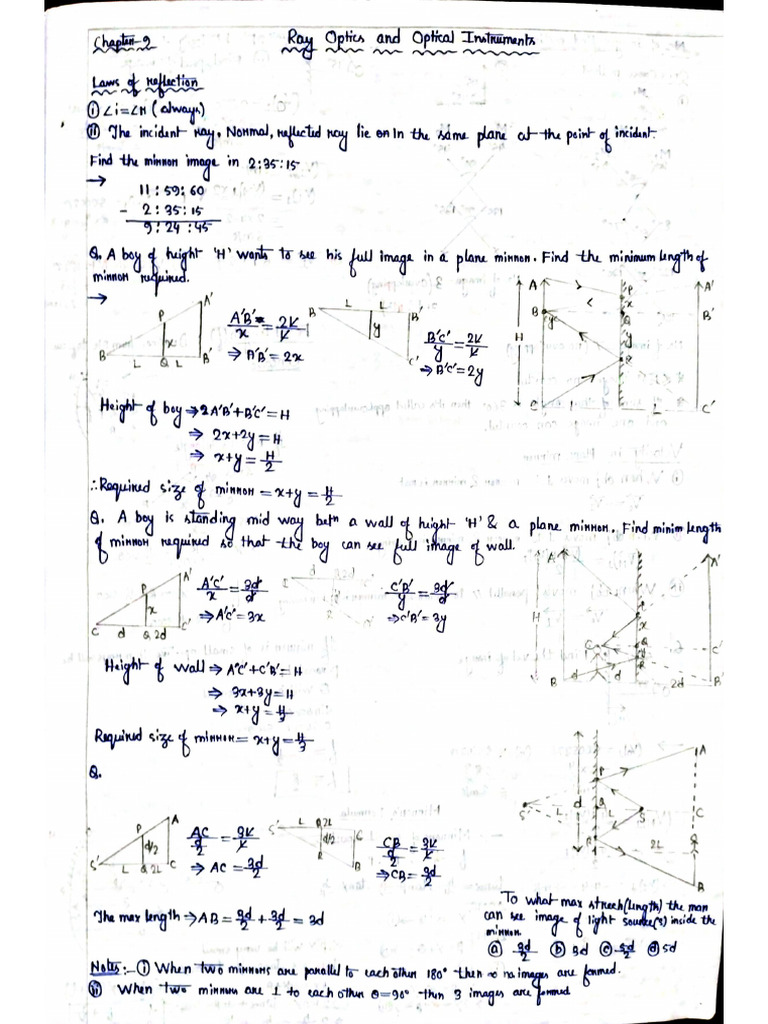 Chapter-9
Ray Optics and Optical Instruments
Laws of reflection
(i) ∠i=∠r (always)
(ii) The incident ray, Normal, reflected ray lie on in the same plane at the point of incident.
Find the mirror image in 2:35:15
→
11 : 59 : 60
- 2 : 35 : 15
9 : 24 : 45
Q. A boy of height 'H' wants to see his full image in a plane mirror. Find the minimum length of
mirror required.
→
A'B'/x = 2L/L
⇒ A'B' = 2x
B'C'/y = 2L/L
⇒ B'C' = 2y
Height of boy → 2A'B'+B'C' = H
⇒ 2x+2y = H
⇒ x+y = H/2
∴ Required size of mirror = x+y = H/2
Q. A boy is standing mid way betn a wall of height 'H' & a plane mirror. Find minim length
of mirror required so that the boy can see full image of wall.
A'C'/x = 3d/d
⇒ A'C' = 3x
C'B'/y = 3d/d
⇒ C'B' = 3y
Height of wall → A'C'+C'B' = H
⇒ 3x+3y = H
⇒ x+y = H/3
Required size of mirror = x+y = H/3
Q.
AC/(d/2) = 3L/L
⇒ AC = 3d/2
CB/(d/2) = 3L/L
⇒ CB = 3d/2
The max length → AB = 3d/2 + 3d/2 = 3d
To what max strech (length) the man
can see image of light source(s) inside the
mirror.
(a) 3d/2 (b) 3d (c) 5d/2 (d) 5d
Notes:- (i) When two mirrors are parallel to each other 180° then ∞ no images are formed.
(ii) When two mirrors are ⊥ to each other θ=90° then 3 images are formed